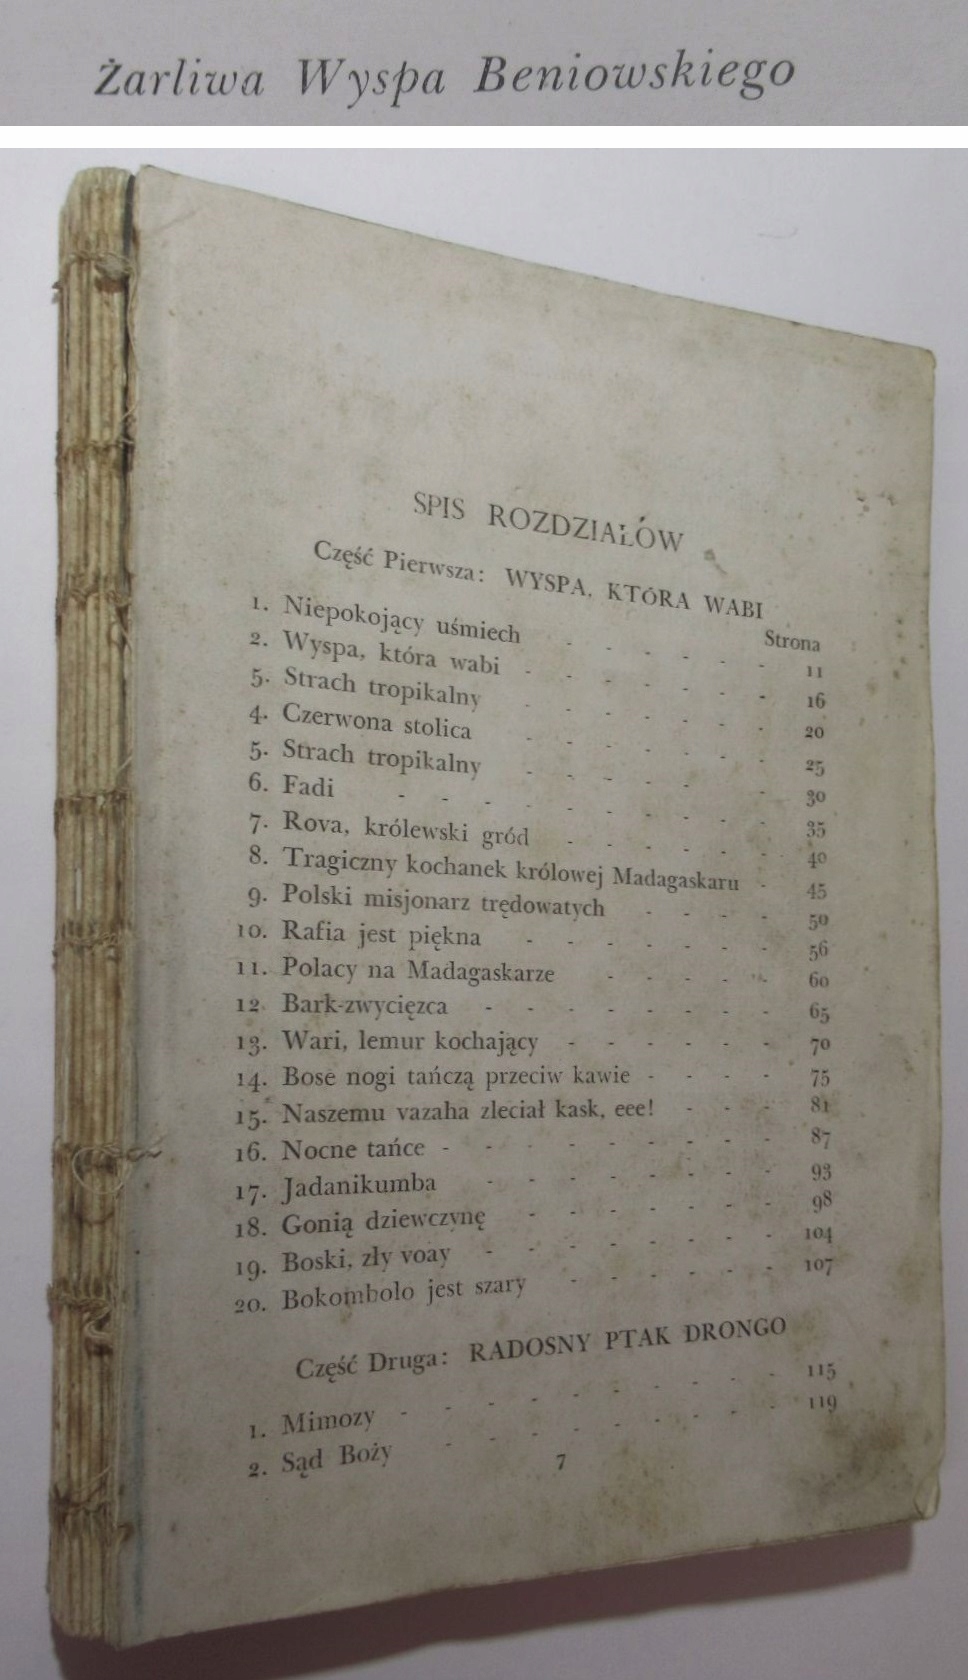 Żarliwa Wyspa Beniowskiego
SPIS ROZDZIAŁÓW
Część Pierwsza: WYSPA, KTÓRA WABI
Strona
1. Niepokojący uśmiech - - - - - - 11
2. Wyspa, która wabi - - - - - - - 16
5. Strach tropikalny - - - - - - - 20
4. Czerwona stolica - - - - - - - 25
5. Strach tropikalny - - - - - - 30
6. Fadi - - - - - - - - - - 35
7. Rova, królewski gród - - - - - - 40
8. Tragiczny kochanek królowej Madagaskaru - 45
9. Polski misjonarz trędowatych - - - - 50
10. Rafia jest piękna - - - - - - - 56
11. Polacy na Madagaskarze - - - - - 60
12. Bark-zwycięzca - - - - - - - - 65
13. Wari, lemur kochający - - - - - - 70
14. Bose nogi tańczą przeciw kawie - - - - 75
15. Naszemu vazaha zleciał kask, eee! - - - 81
16. Nocne tańce - - - - - - - - - 87
17. Jadanikumba - - - - - - - - 93
18. Gonią dziewczynę - - - - - - - 98
19. Boski, zły voay - - - - - - - - 104
20. Bokombolo jest szary - - - - - - 107
Część Druga: RADOSNY PTAK DRONGO
1. Mimozy - - - - - - - - - - 115
2. Sąd Boży - - - - - - - - - 119
7